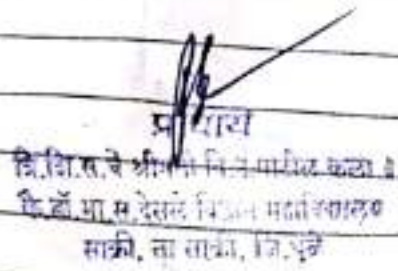 प्राचार्य
वि.शि.स.चे श्रीमती वि.न.पाटील कला व
कै.डॉ.भा.स.देसले विज्ञान महाविद्यालय
साक्री, ता साक्री, जि.धुळे